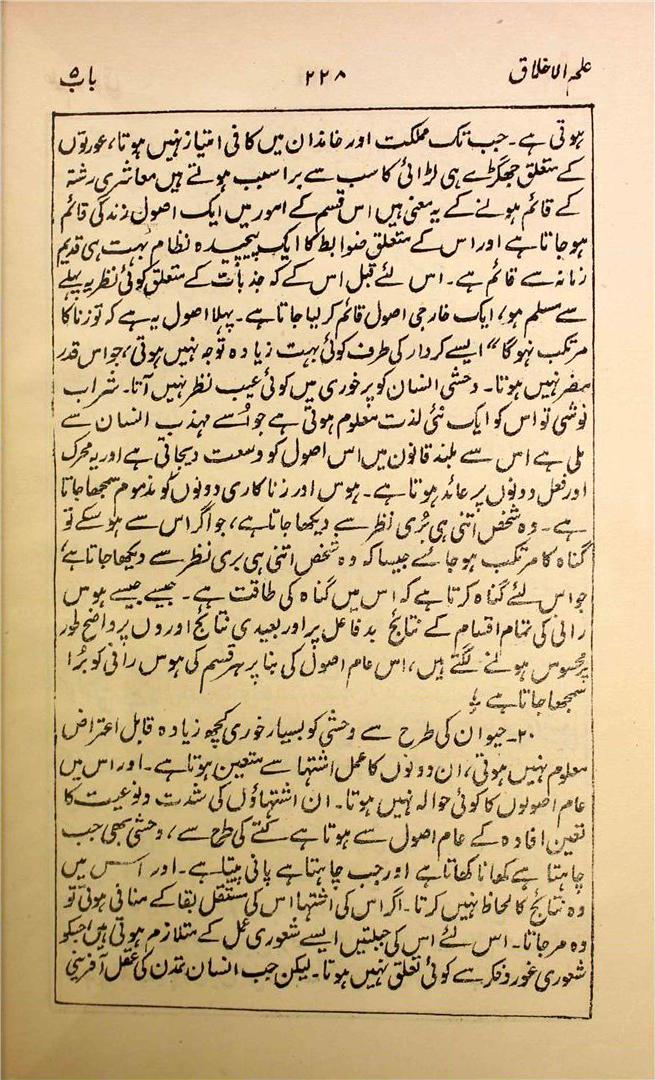 علم الاخلاق ۲۲۸ باب ۵
ہوتی ہے۔ جب تک مملکت اور خاندان میں کافی امتیاز نہیں ہوتا، عورتوں
کے متعلق جھگڑے ہی لڑائی کا سب سے بڑا سبب ہوتے ہیں معاشری رشتہ
کے قائم ہونے کے یہ معنی ہیں اس قسم کے امور میں ایک اصول زندگی قائم
ہو جاتا ہے اور اس کے متعلق ضوابط کا ایک پیچیدہ نظام بہت ہی قدیم
زمانہ سے قائم ہے۔ اس لئے قبل اس کے کہ جذبات کے متعلق کوئی نظریہ پہلے
سے مسلم ہو، ایک خارجی اصول قائم کر لیا جاتا ہے۔ پہلا اصول یہ ہے کہ تو زنا کا
مرتکب نہو گا“ ایسے کردار کی طرف کوئی بہت زیادہ توجہ نہیں ہوتی، جو اس قدر
مضر نہیں ہوتا۔ وحشی انسان کو پرخوری میں کوئی عیب نظر نہیں آتا۔ شراب
نوشی تو اس کو ایک نئی لذت معلوم ہوتی ہے جو اُسے مہذب انسان سے
ملی ہے اس سے بلند قانون میں اس اصول کو وسعت دیجاتی ہے اور یہ محرک
اور فعل دونوں پر عائد ہوتا ہے۔ ہوس اور زنا کاری دونوں کو مذموم سمجھا جاتا
ہے۔ وہ شخص اتنی ہی بُری نظر سے دیکھا جاتا ہے، جو اگر اس سے ہو سکے تو
گناہ کا مرتکب ہو جائے جیسا کہ وہ شخص اتنی ہی بری نظر سے دیکھا جاتا ہے،
جو اس لئے گناہ کرتا ہے کہ اس میں گناہ کی طاقت ہے۔ جیسے جیسے ہوس
رانی کی تمام اقسام کے نتائج بد فاعل پر اور بعیدی نتائج اوروں پر واضح طور
پر محسوس ہونے لگتے ہیں، اس عام اصول کی بنا پر ہر قسم کی ہوس رانی کو بُرا
سمجھا جاتا ہے
۲۰۔ حیوان کی طرح سے وحشی کو بسیار خوری کچھ زیادہ قابل اعتراض
معلوم نہیں ہوتی، ان دونوں کا عمل اشتہا سے متعین ہوتا ہے۔ اور اس میں
عام اصولوں کا کوئی حوالہ نہیں ہوتا۔ ان اشتہاؤں کی شدت و نوعیت کا
تعین افادہ کے عام اصول سے ہوتا ہے کتے کی طرح سے، وحشی بھی جب
چاہتا ہے کھانا کھاتا ہے اور جب چاہتا ہے پانی پیتا ہے۔ اور اس میں
وہ نتائج کا لحاظ نہیں کرتا۔ اگر اس کی اشتہا اس کی مستقل بقا کے منافی ہوتی تو
وہ مرجاتا۔ اس لئے اس کی جبلتیں ایسے شعوری عمل کے متلازم ہوتی ہیں، جسکو
شعوری غور و فکر سے کوئی تعلق نہیں ہوتا۔ لیکن جب انسان تمدن کی عقل آفرینی